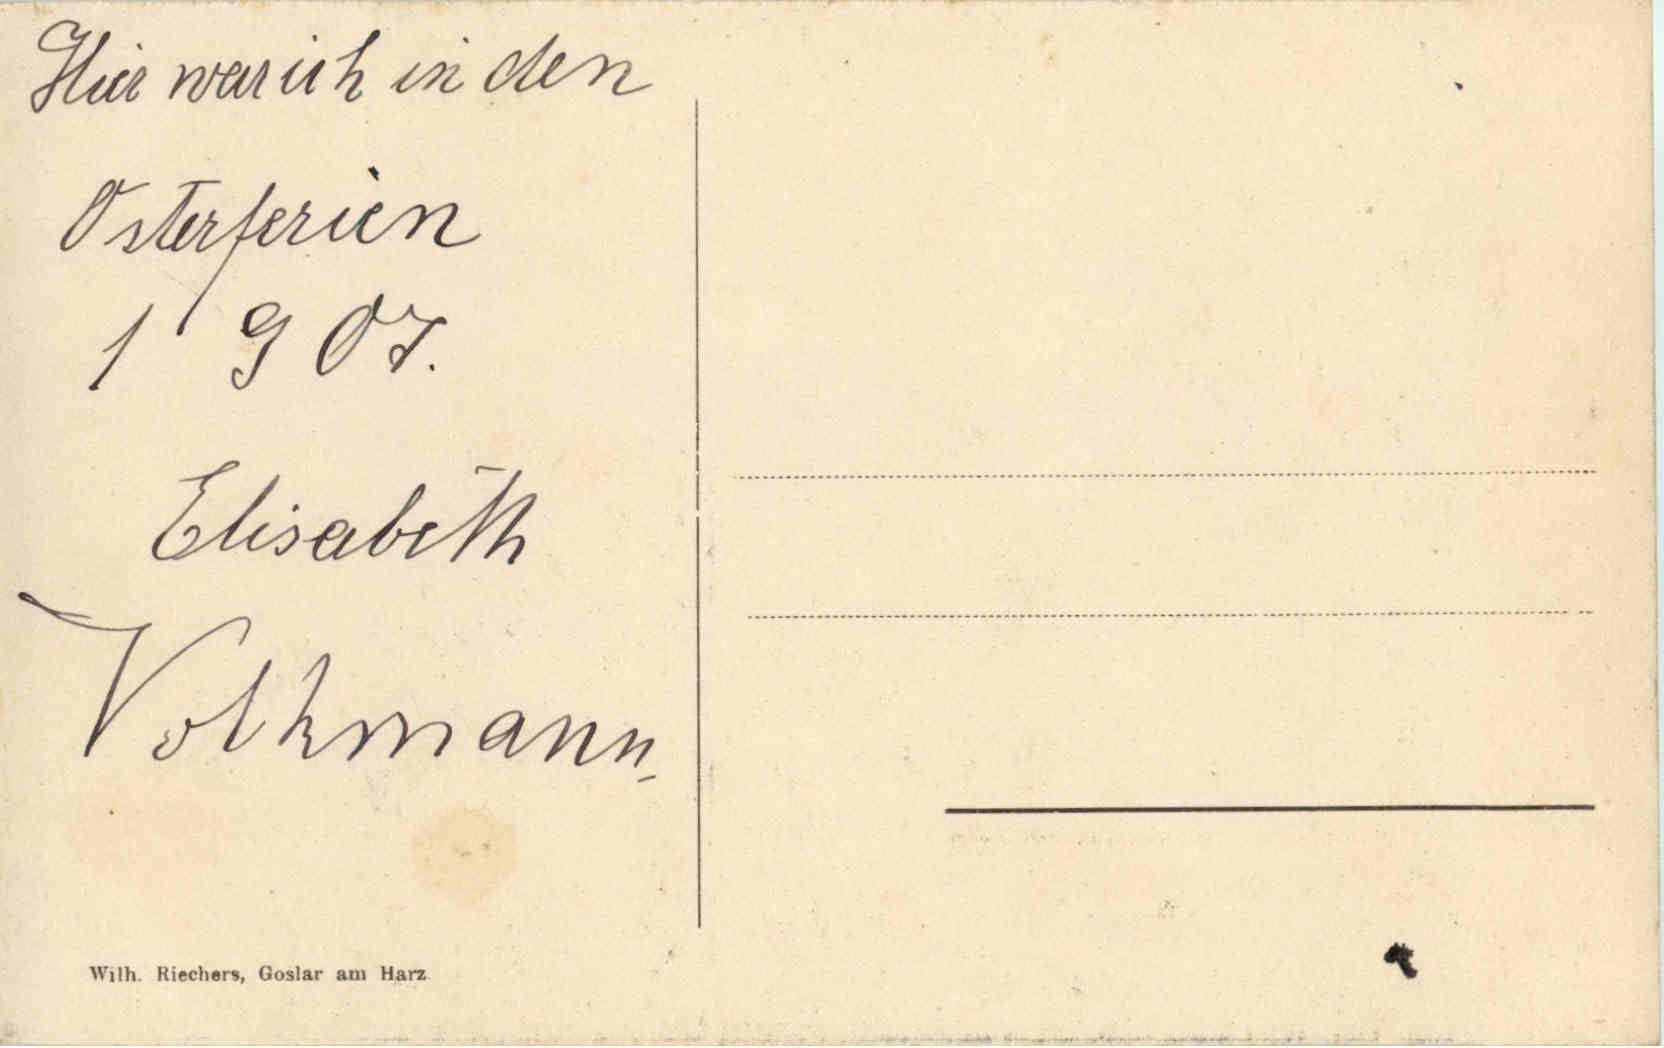 Hier war ich in den
Osterferien
1907.
Elisabeth
Volkmann
Wilh. Riechers, Goslar am Harz